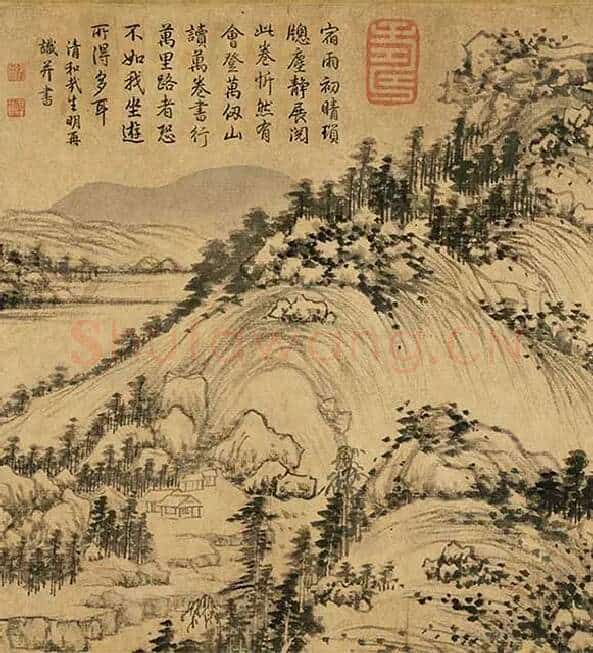 宿雨初晴瑣
牕塵靜展閱
此卷忻然有
會登萬仭山
讀萬卷書行
萬里路者恐
不如我坐遊
所得多耳
清和哉生明再
識并書
Shufawang.CN